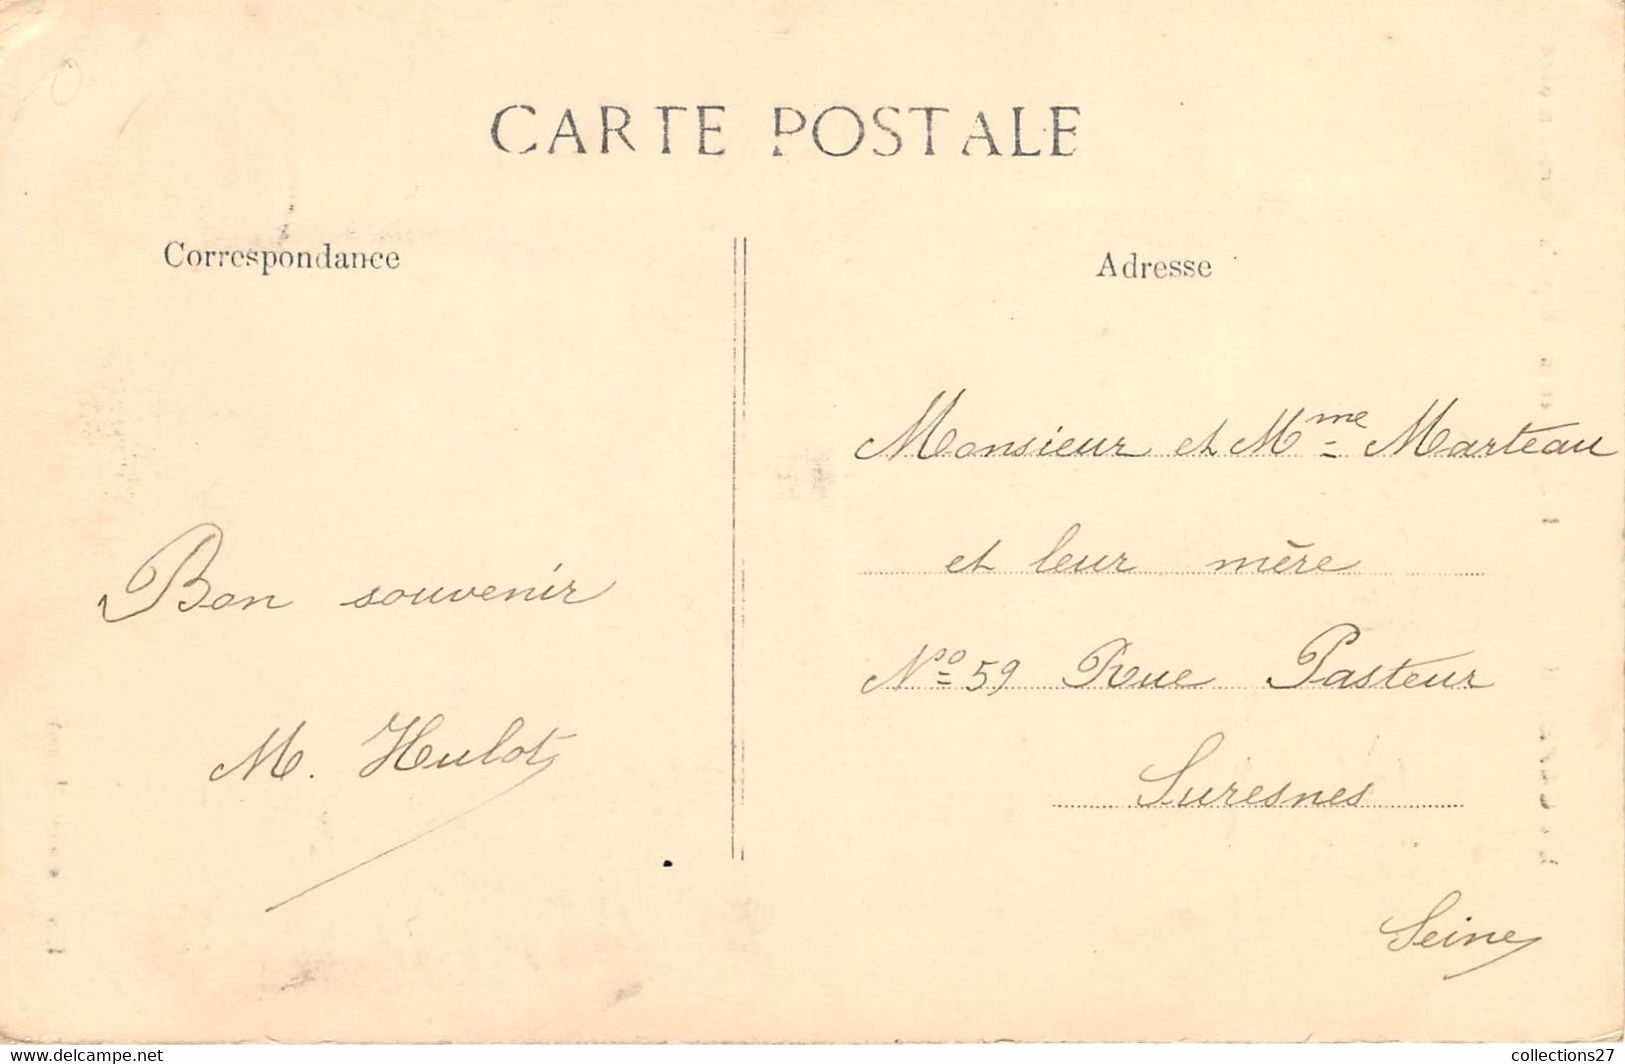 CARTE POSTALE
Correspondance
Adresse
Bon souvenir
M. Hulot
Monsieur et Mme Marteau
et leur mère
No 59 Rue Pasteur
Suresnes
Seine
www.delcampe.net
collections27